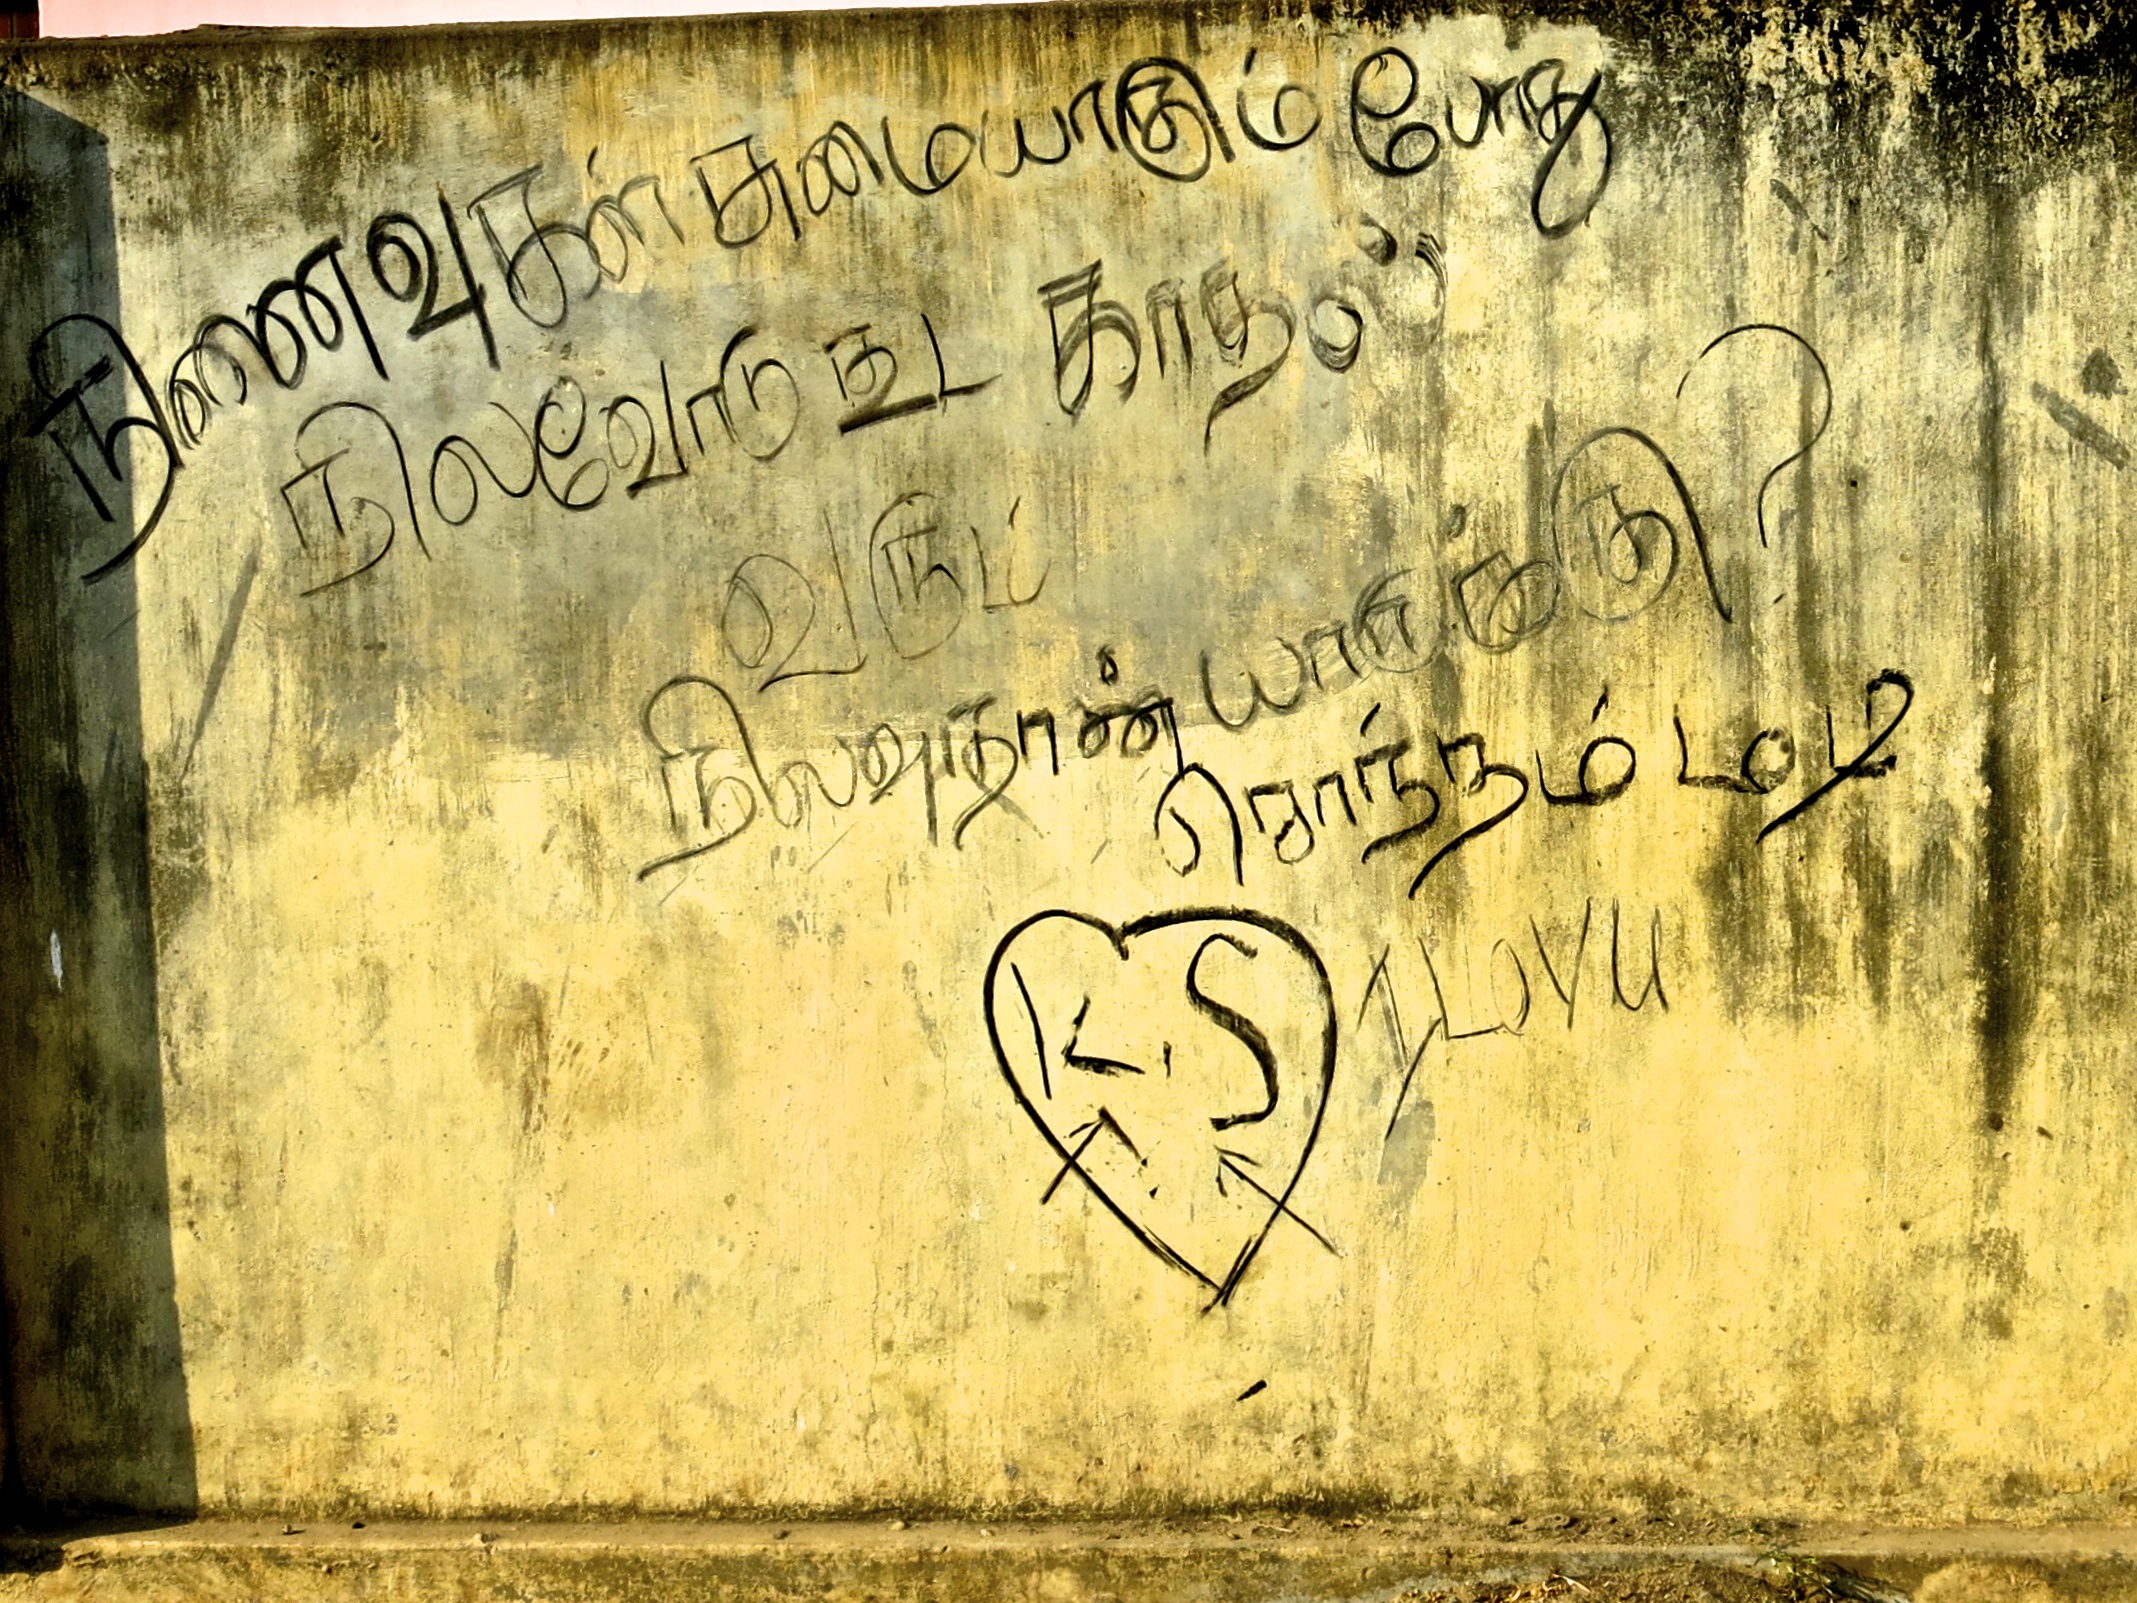 நிணைவுகள் சுமையாகும் போது
நிலவோடு கூட காதல்
வரும்
நிலவுதான் யாருக்கு?
சொந்தம்
K.S
I LOVU